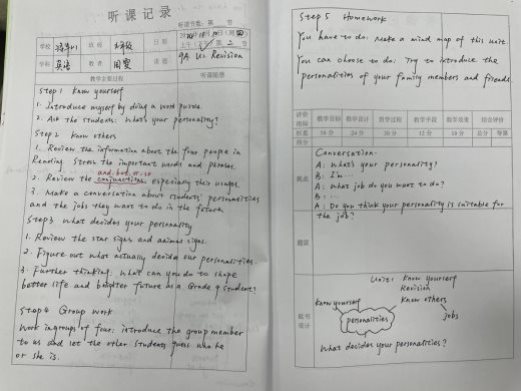 听课记录
听课节数: 第 节
学校 班级 九年级 日期
学科 英语 教者 周雯 课题 9A U1 Revision
教学主要过程 听课随感
Step 1 Know yourself
1. Introduce myself by doing a word puzzle.
2. Ask the students: What's your personality?
Step 2 Know others
1. Review the information about the four people in
Reading. Stress the important words and phrases.
and, but, or, so
2. Review the conjunctions, especially their usages.
3. Make a conversation about students' personalities
and the job they want to do in the future
Step 3 What decides your personality
1. Review the star signs and animal signs.
2. Figure out what actually decides our personalities.
3. Further thinking: What can you do to shape
better life and brighter future as a Grade 9 student?
Step 4 Group work
Work in groups of four: introduce the group member
to us and let the other students guess who he
or she is.
Step 5 Homework
You have to do: Make a mind map of this unit
You can choose to do: Try to introduce the
personalities of your family members and friends.
评价 教学目标 教学设计 教学过程 教学手段 教学效果 综合评价
总分 等第
得分
Conversation:
A: What's your personality?
B: I'm...
A: What job do you want to do?
B: ...
A: Do you think your personality is suitable for
the job?
建议
Unit 1 Know yourself
Revision
know yourself Know others
personalities jobs
板书
设计
What decides your personalities?